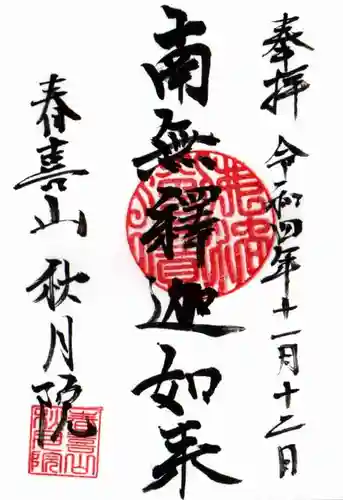 奉拝 令和四年十一月十二日
南無釋迦如来
春喜山 秋月院